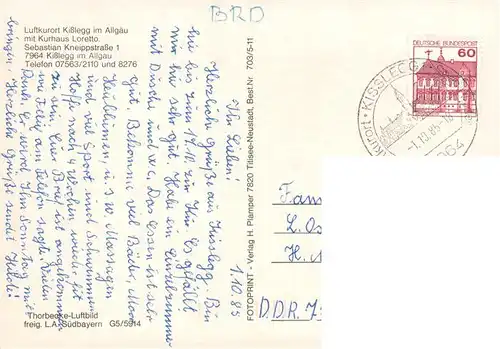 BRD
Luftkurort Kißlegg im Allgäu
mit Kurhaus Loretto.
Sebastian Kneippstraße 1
7964 Kißlegg im Allgäu
Telefon 07563/2110 und 8276
1.10.85
Ihr Lieben!
Herzliche Grüße aus Kisslegg. Bin
hier bis zum 17.10. zur Kur. Es gefällt
mir hier sehr gut. Habe ein Einzelzimmer
mit Dusche und W.C. Das Essen ist sehr
gut. Bekomme viel Bäder, Moor
Heublumen, u. s. w. Massagen
und viel Sport und Schwimmen.
Hoffe nach 4 Wochen wieder fit
zu sein. Euer Brief ist angekommen
wie am Telefon sagte. Vielen
Dank.
bringen. Herzliche Grüße sendet Hilde!
Thorbecke-Luftbild
freig. L.A. Südbayern G5/5914
FOTOPRINT - Verlag H. Plamper 7820 Titisee-Neustadt, Best.Nr. 703/5-11
DEUTSCHE BUNDESPOST
60
KISSLEGG
-1.10.85-16
7964
Fam
L. Os
H. M
D.D.R. 7